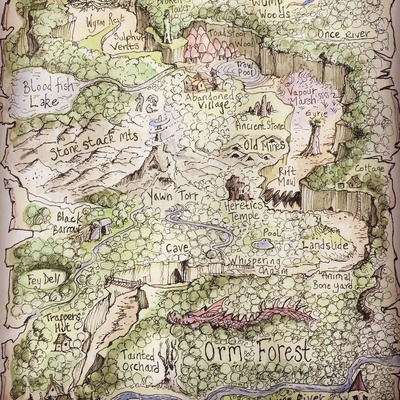 Wyrm Nest
Sulphur
Vents
Broken
Tower
Woods
Once River
Toadstool
Wood
Pool
Bloodfish
Lake
Abandoned
Village
Vapour
Marsh
Eyrie
Ancient Stones
Old Mines
Stone stack Mts
Rift
Maul
Cottage
Yawn Torr
Heretics
Temple
Black
Barrow
Pool
Landslide
Cave
Whispering
Chasm
Animal
Bone yard
Fey Dell
Trappers
Hut
Tainted
Orchard
Orm Forest
River